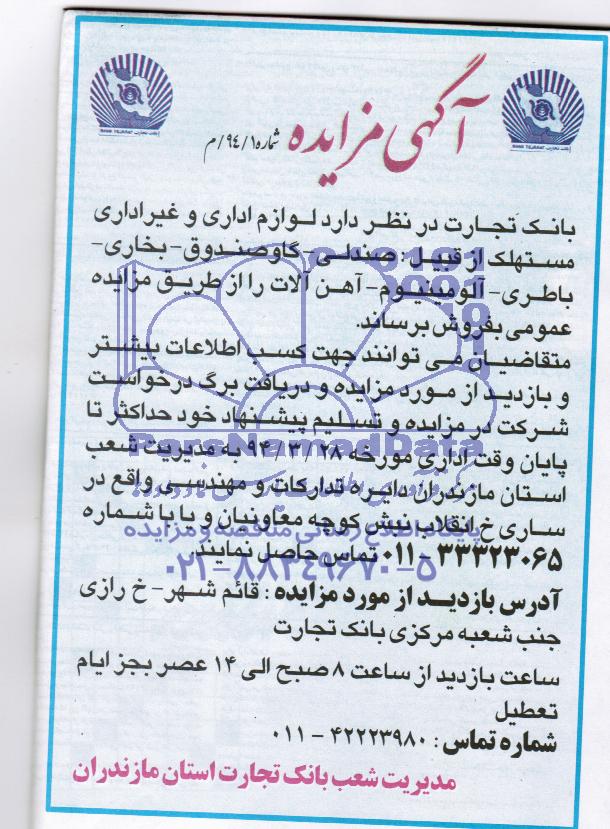 آگهی مزایده شماره ۹۴/۱/م
BANK TEJARAT
بانک تجارت
بانک تجارت در نظر دارد لوازم اداری و غیراداری
مستهلک از قبیل: صندلی- گاوصندوق- بخاری-
باطری- آلومینیوم- آهن آلات را از طریق مزایده
عمومی بفروش برساند.
متقاضیان می توانند جهت کسب اطلاعات پیشتر
و بازدید از مورد مزایده و دریافت برگ درخواست
شرکت در مزایده و تسلیم پیشنهاد خود حداکثر تا
پایان وقت اداری مورخه ۹۴/۳/۲۸ به مدیریت شعب
استان مازندران دایره تدارکات و مهندسی واقع در
ساری خ انقلاب نبش کوچه معاونیان و یا با شماره
۳۳۳۲۳۰۶۵ - ۰۱۱ تماس حاصل نمایند.
آدرس بازدید از مورد مزایده : قائم شهر- خ رازی
جنب شعبه مرکزی بانک تجارت
ساعت بازدید از ساعت ۸ صبح الی ۱۴ عصر بجز ایام
تعطیل
شماره تماس : ۴۲۲۲۳۹۸۰ - ۰۱۱
مدیریت شعب بانک تجارت استان مازندران
ParsNamadData
پایگاه اطلاع رسانی مناقصه و مزایده
۰۲۱-۸۸۳۴۹۶۷۰-۵